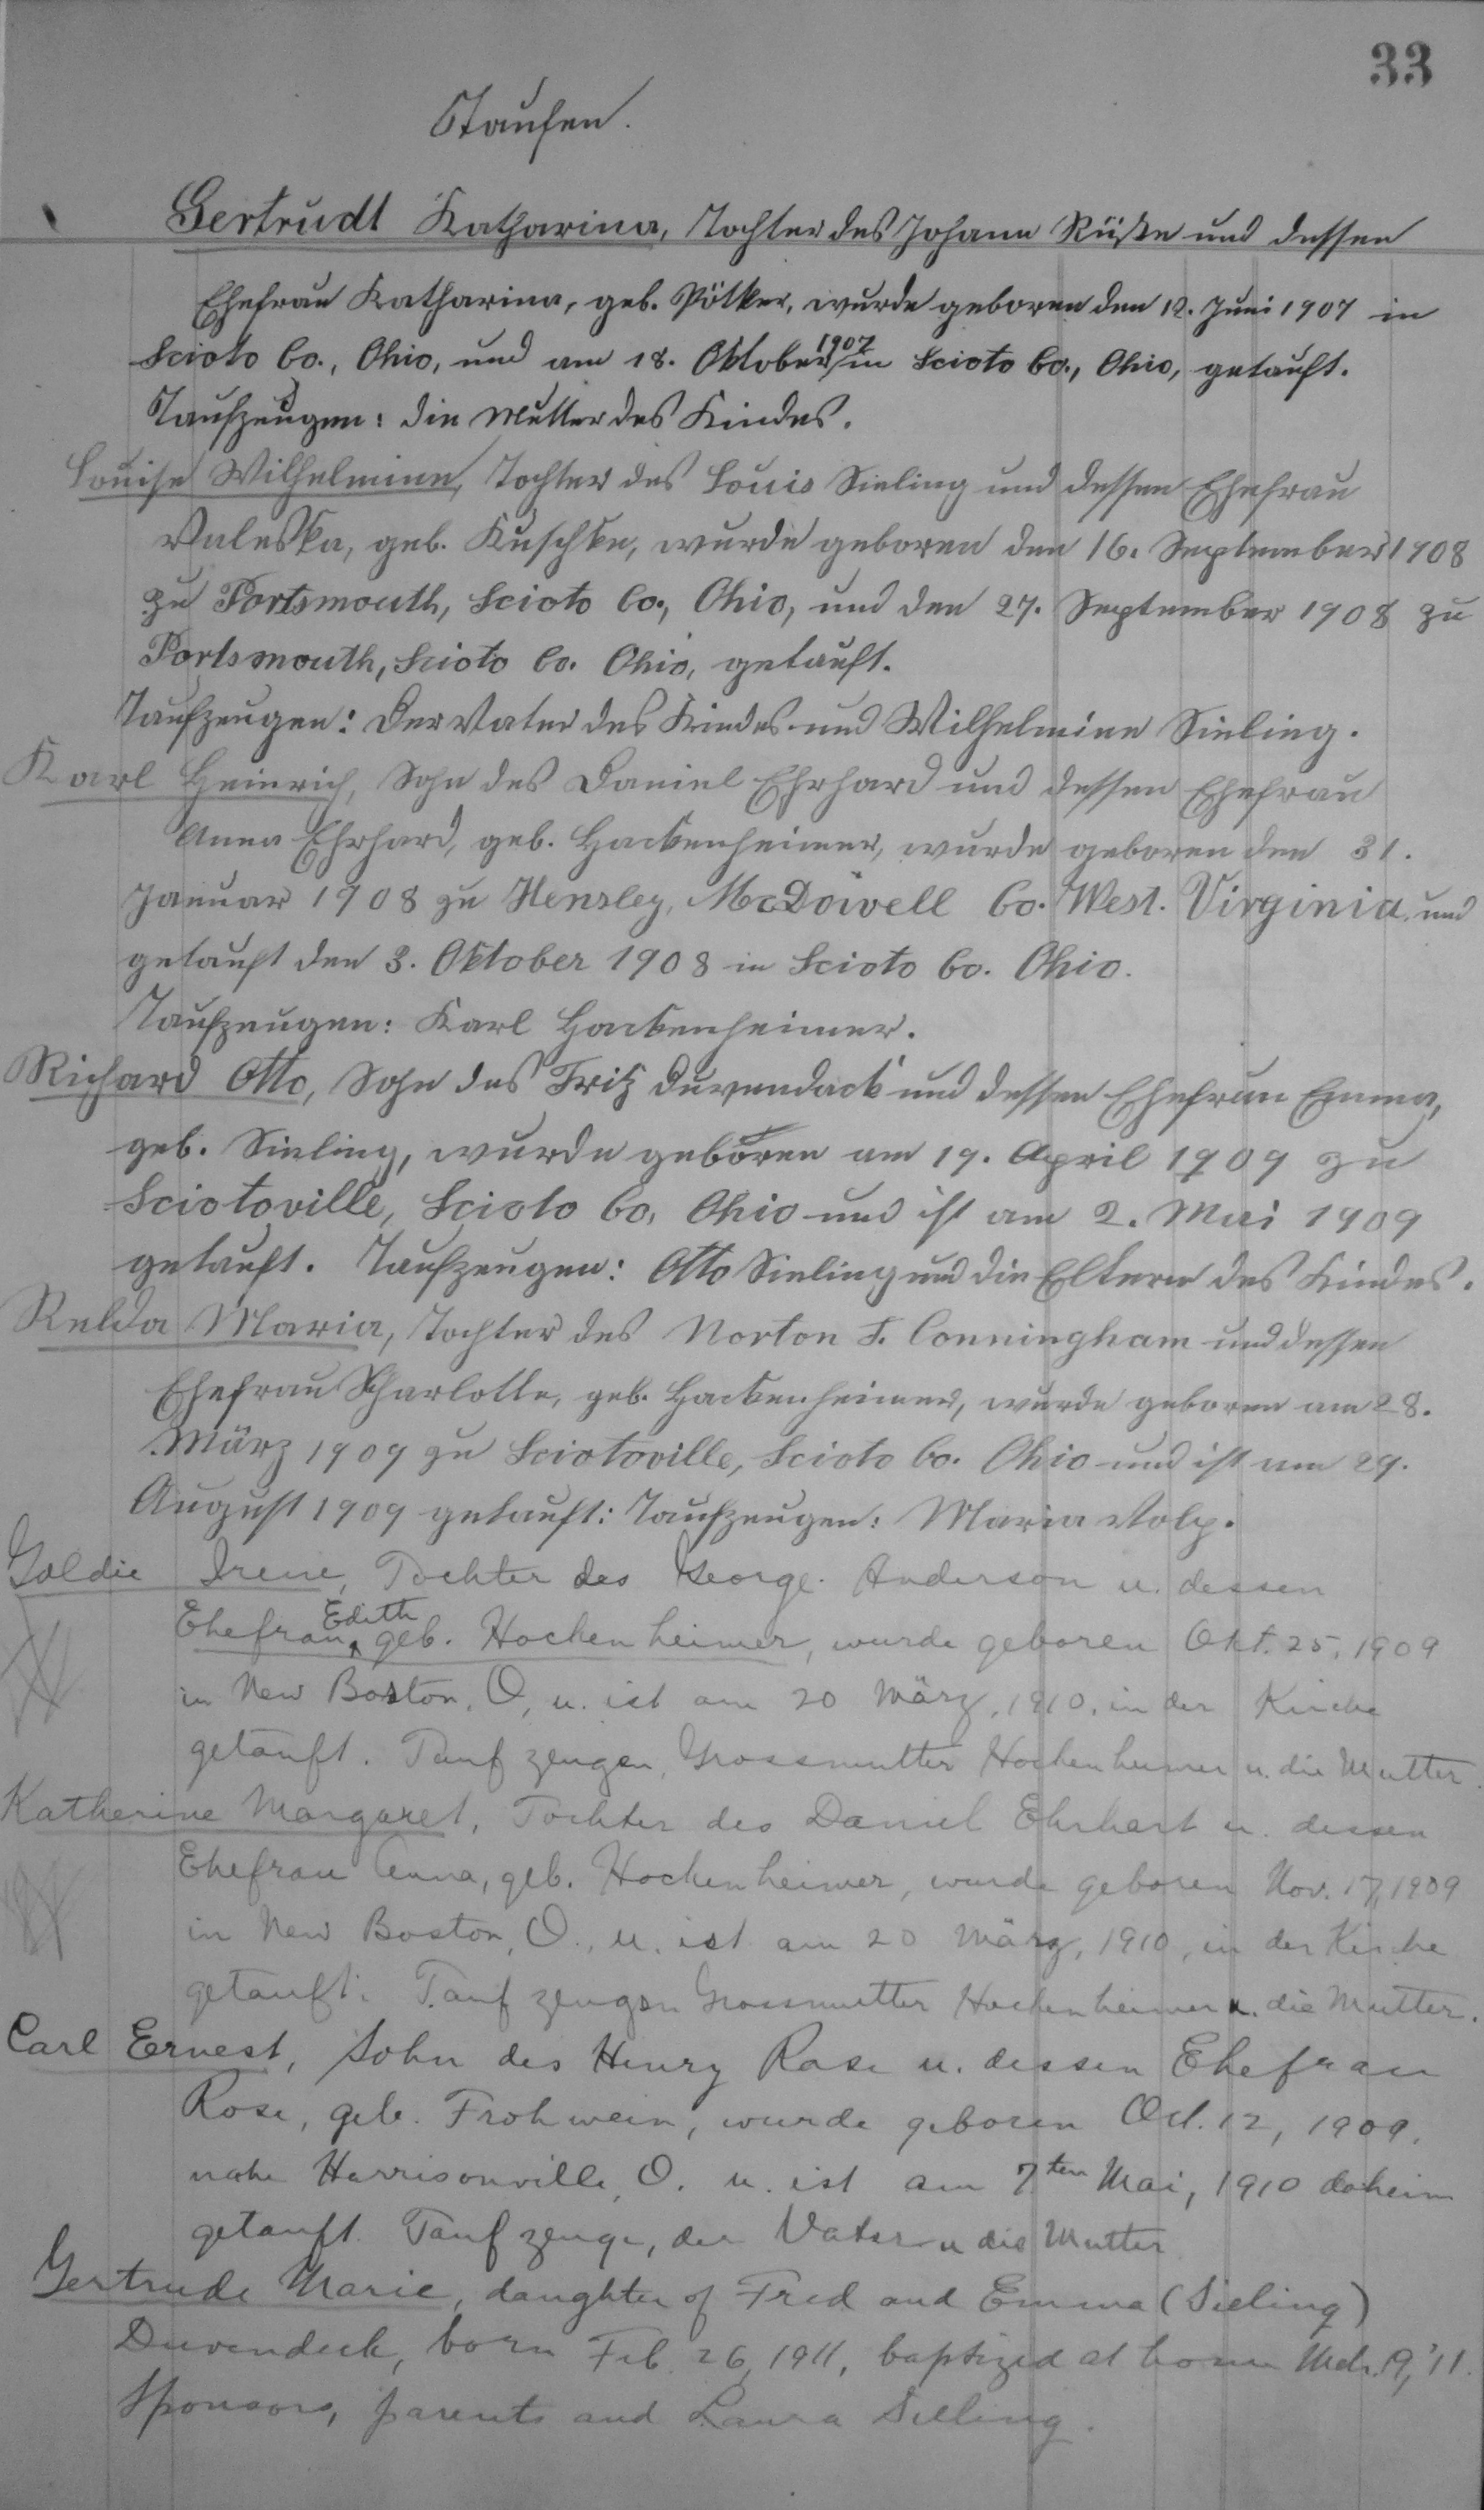 33
Taufen.
Gertrudt Katharina, Tochter des Johann Rüske und dessen
Ehefrau Katharina, geb. Pötker, wurde geboren den 12. Juni 1907 in
Scioto Co., Ohio, und am 18. Oktober 1907 in Scioto Co., Ohio, getauft.
Taufzeugen: die Mutter des Kindes.
Louise Wilhelmine, Tochter des Louis Sieling und dessen Ehefrau
Valeska, geb. Kuschke, wurde geboren den 16. September 1908
zu Portsmouth, Scioto Co., Ohio, und den 27. September 1908 zu
Portsmouth, Scioto Co. Ohio, getauft.
Taufzeugen: Der Vater des Kindes und Wilhelmine Sieling.
Karl Heinrich, Sohn des Daniel Ehrhard und dessen Ehefrau
Anna Ehrhard, geb. Hackenheimer, wurde geboren den 31.
Januar 1908 zu Hensley, McDowell Co. West. Virginia und
getauft den 3. Oktober 1908 in Scioto Co. Ohio.
Taufzeugen: Karl Hackenheimer.
Richard Otto, Sohn des Fritz Duvendack und dessen Ehefrau Emma,
geb. Sieling, wurde geboren am 19. April 1909 zu
Sciotoville, Scioto Co, Ohio und ist am 2. Mai 1909
getauft. Taufzeugen: Otto Sieling und die Eltern des Kindes.
Relda Maria, Tochter des Norton F. Conningham und dessen
Ehefrau Scharlotte, geb. Hackenheimer, wurde geboren am 28.
März 1909 zu Sciotoville, Scioto Co. Ohio und ist am 29.
August 1909 getauft: Taufzeugen: Maria Volz.
Goldie Irene, Tochter des George Anderson u. dessen
Ehefrau Edith geb. Hockenheimer, wurde geboren Okt. 25, 1909
in New Boston, O, u. ist am 20 März, 1910, in der Kirche
getauft. Taufzeugen, Grossmutter Hockenheimer u. die Mutter.
Katherine Margaret, Tochter des Daniel Ehrhart u. dessen
Ehefrau Anna, geb. Hockenheimer, wurde geboren Nov. 17, 1909
in New Boston, O., u. ist am 20 März, 1910, in der Kirche
getauft. Taufzeugen Grossmutter Hockenheimer u. die Mutter.
Carl Ernest, Sohn des Henry Rase u. dessen Ehefrau
Rose, geb. Frohwein, wurde geboren Oct. 12, 1909,
nahe Harrisonville, O. u. ist am 7ten Mai, 1910 daheim
getauft. Taufzeuge, der Vater u die Mutter
Gertrude Marie, daughter of Fred and Emma (Sieling)
Duvendeck, born Feb. 26, 1911, baptized at home Mch. 19, '11.
Sponsors, parents and Laura Sieling.